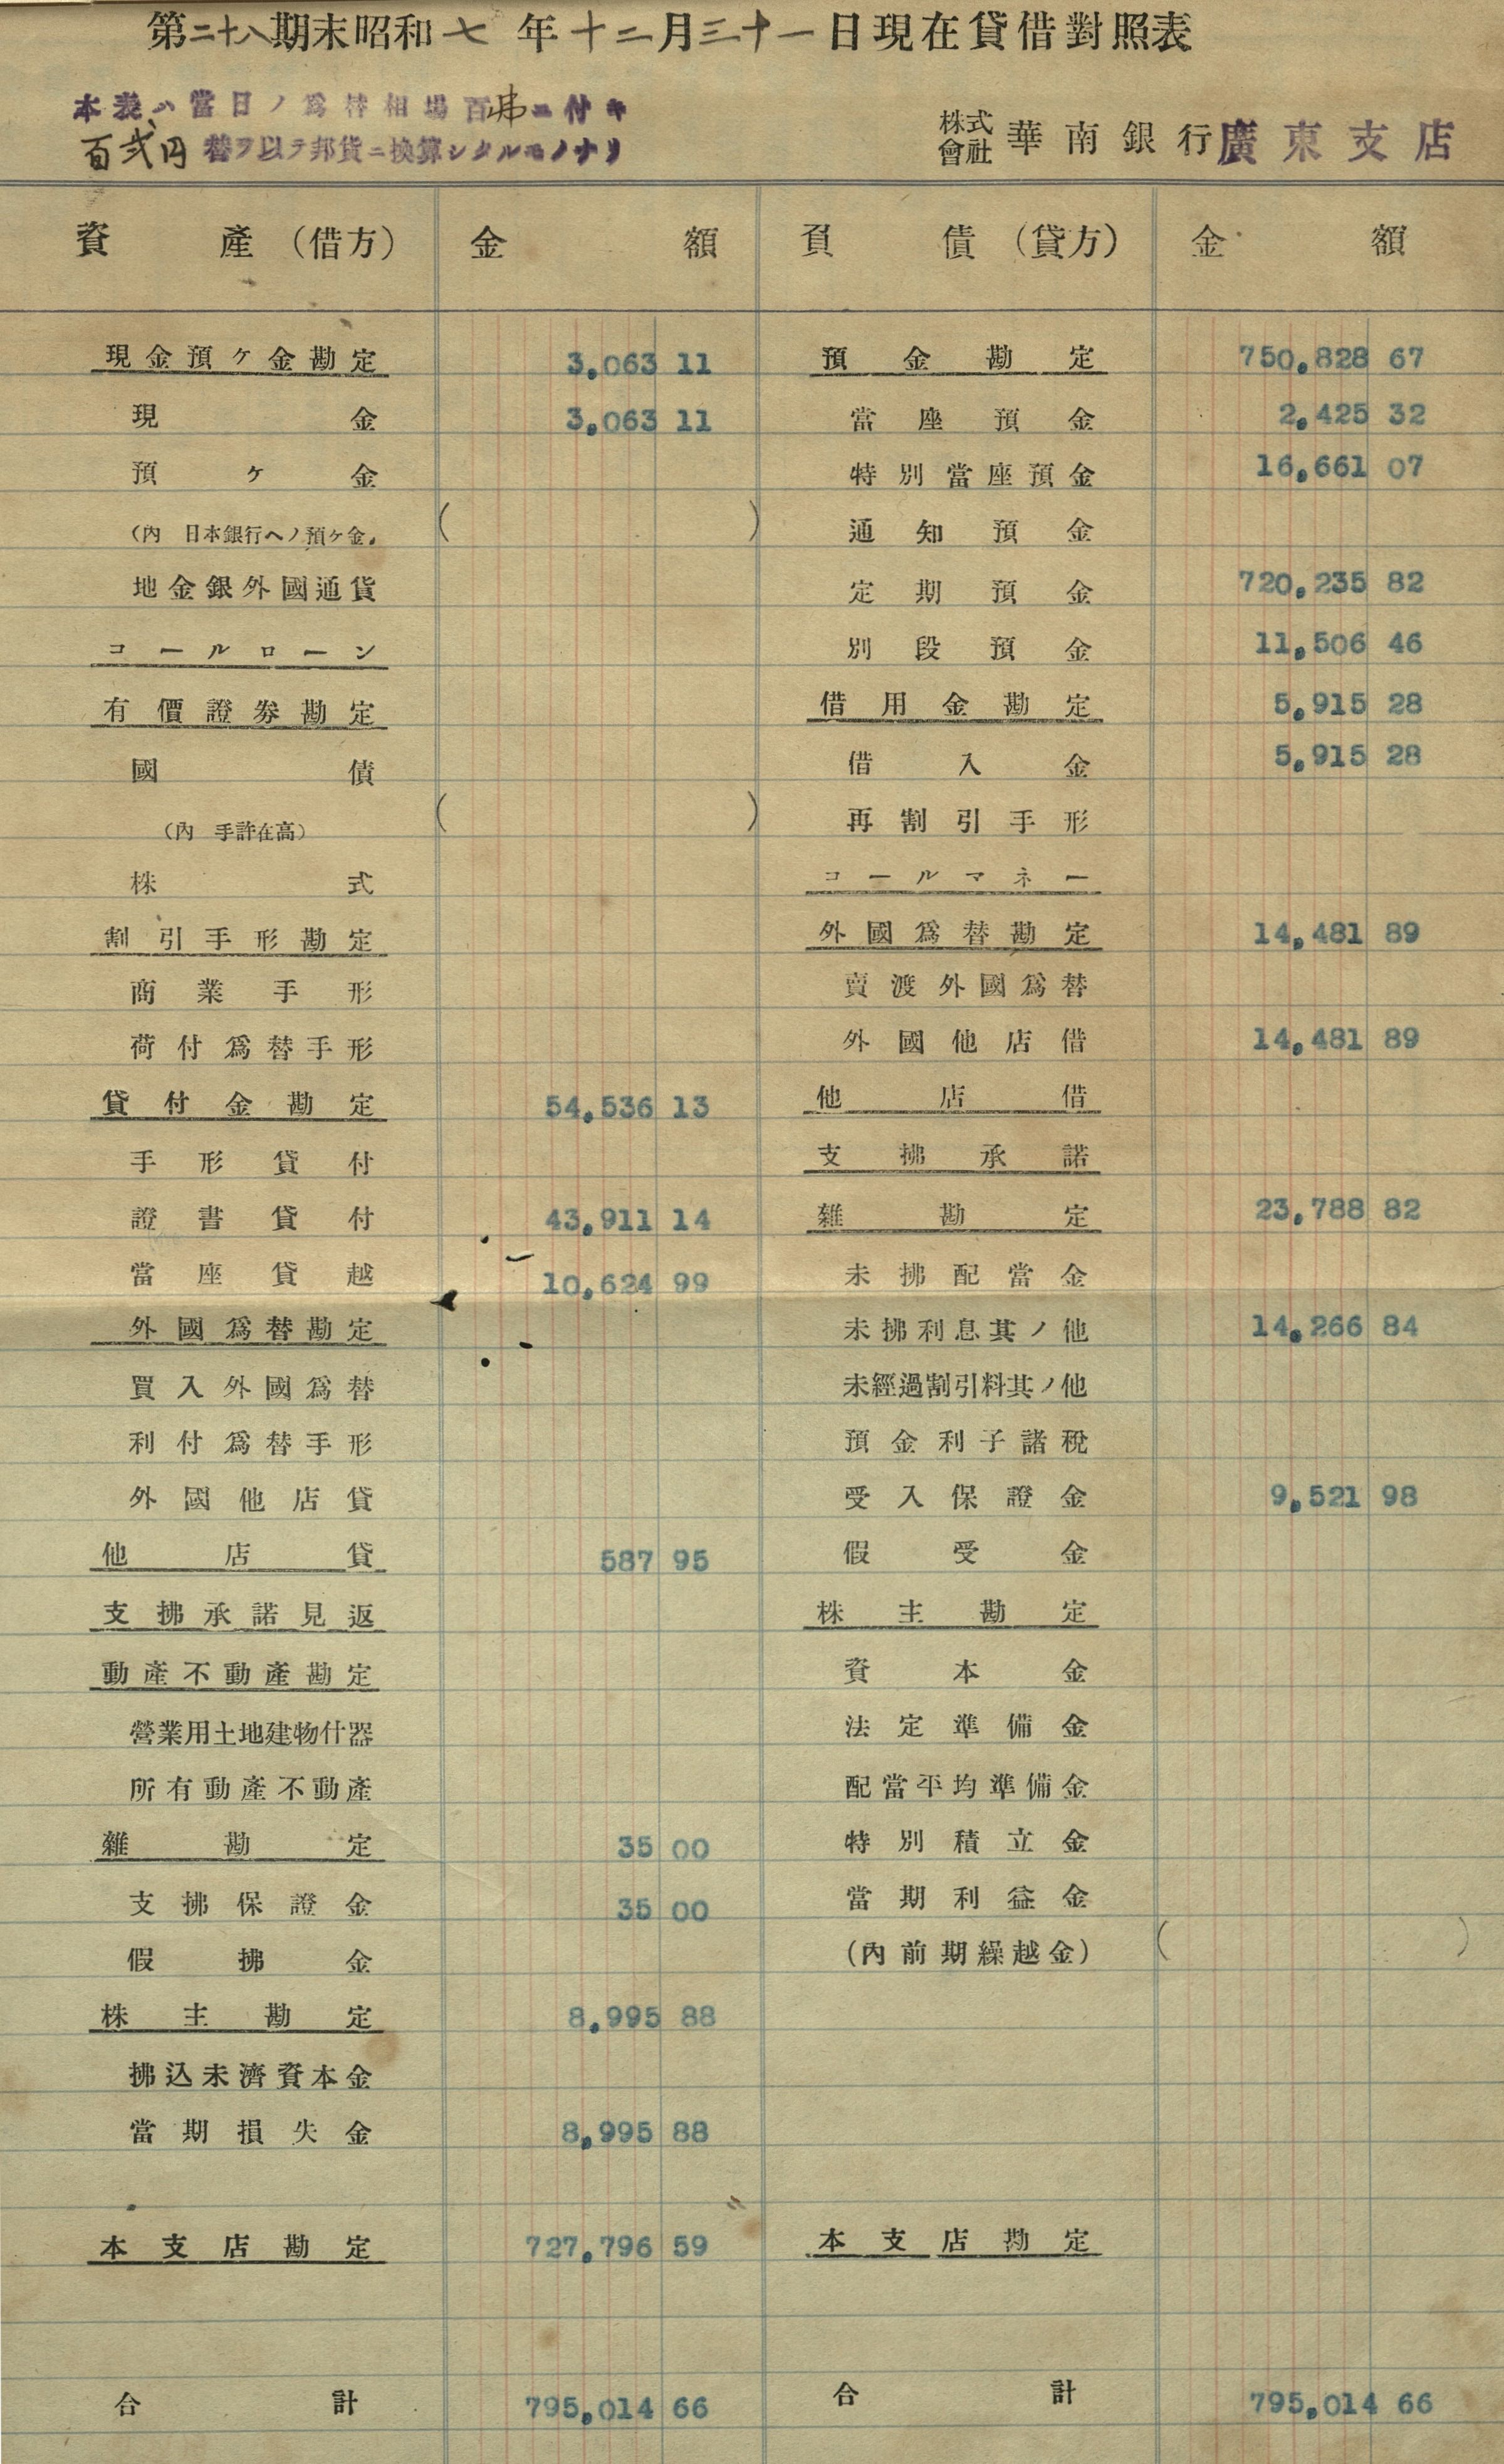 第二十八期末昭和七年十二月三十一日現在貸借對照表
本表ハ當日ノ爲替相場百弗ニ付キ
百弐円替ヲ以テ邦貨ニ換算シタルモノナリ
株式會社 華南銀行廣東支店
資產(借方) 金額 負債(貸方) 金額
現金預ケ金勘定 3,063 11 預金勘定 750,828 67
現金 3,063 11 當座預金 2,425 32
預ケ金 特別當座預金 16,661 07
(內 日本銀行ヘノ預ケ金) ( ) 通知預金
地金銀外國通貨 定期預金 720,235 82
コールローン 別段預金 11,506 46
有價證券勘定 借用金勘定 5,915 28
國債 借入金 5,915 28
(內 手許在高) ( ) 再割引手形
株式 コールマネー
割引手形勘定 外國爲替勘定 14,481 89
商業手形 賣渡外國爲替
荷付爲替手形 外國他店借 14,481 89
貸付金勘定 54,536 13 他店借
手形貸付 支拂承諾
證書貸付 43,911 14 雜勘定 23,788 82
當座貸越 10,624 99 未拂配當金
外國爲替勘定 未拂利息其ノ他 14,266 84
買入外國爲替 未經過割引料其ノ他
利付爲替手形 預金利子諸稅
外國他店貸 受入保證金 9,521 98
他店貸 587 95 假受金
支拂承諾見返 株主勘定
動產不動產勘定 資本金
營業用土地建物什器 法定準備金
所有動產不動產 配當平均準備金
雜勘定 35 00 特別積立金
支拂保證金 35 00 當期利益金
假拂金 (內前期繰越金) ( )
株主勘定 8,995 88
拂込未濟資本金
當期損失金 8,995 88
本支店勘定 727,796 59 本支店勘定
合計 795,014 66 合計 795,014 66